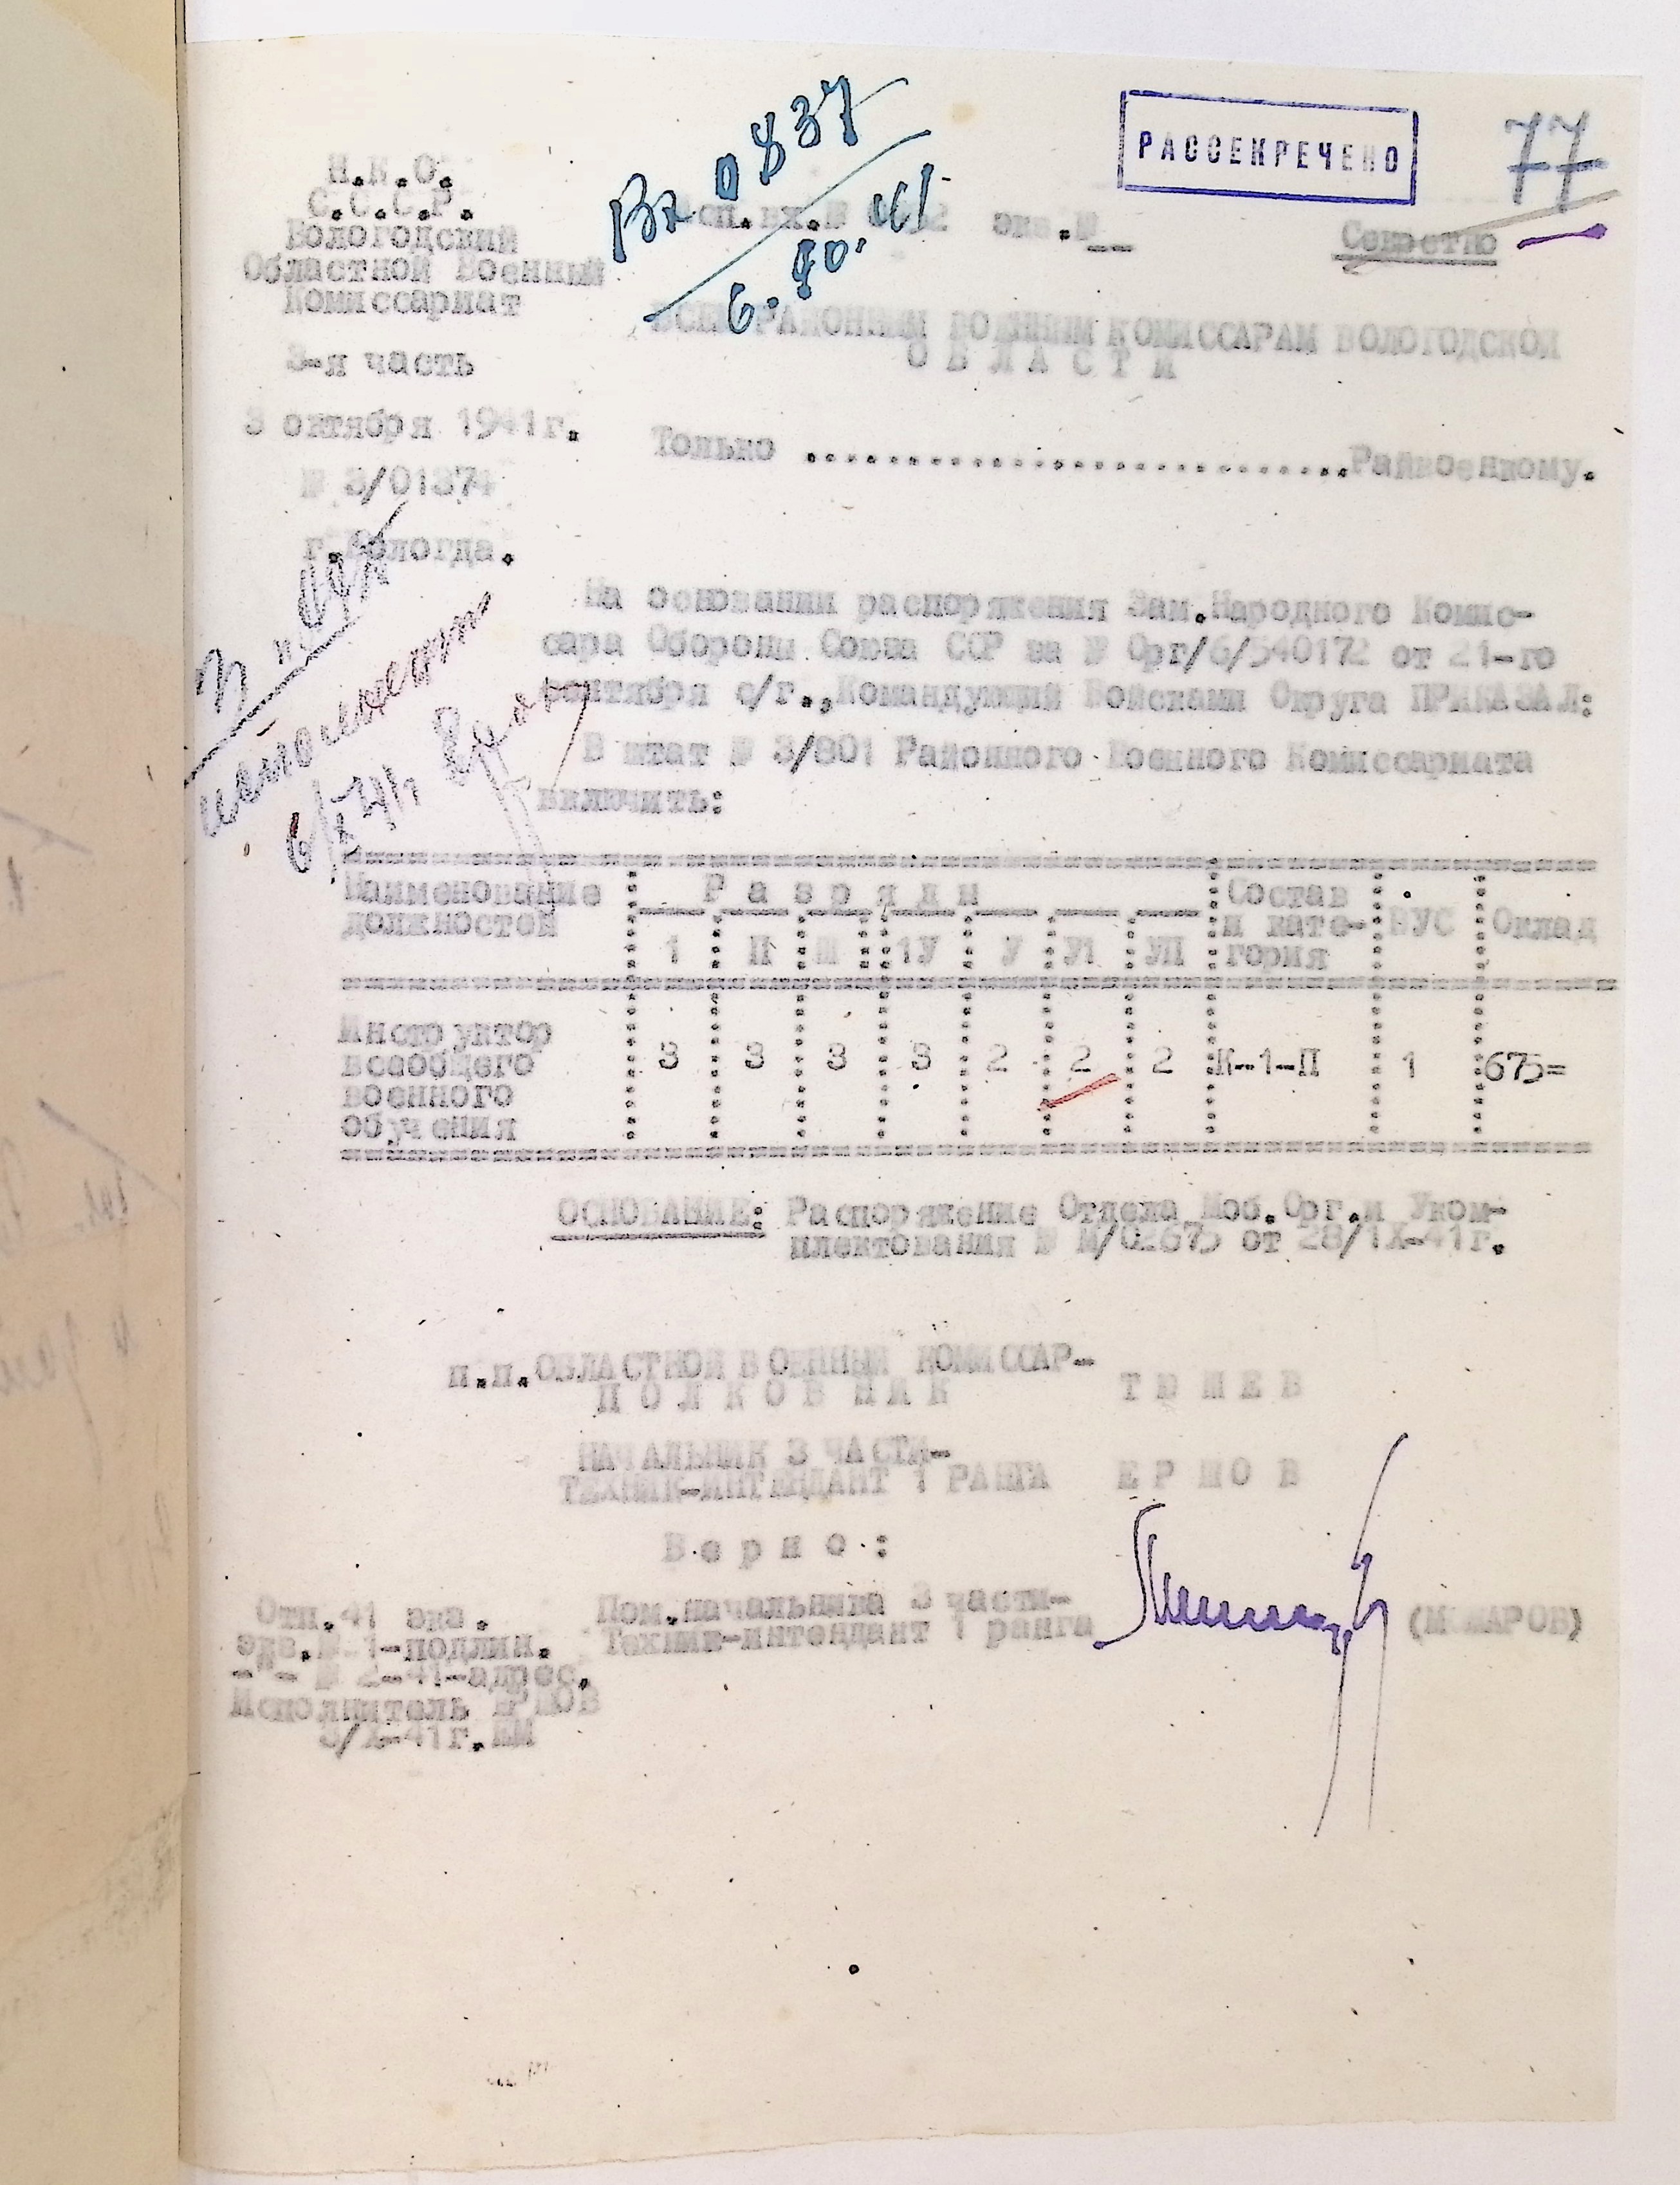 РАССЕКРЕЧЕНО
77
Вх 0837
6.10.41
Н.К.О.
С.С.С.Р.
Вологодский
Областной Военный
Комиссариат
3-я часть
3 октября 1941г.
№ 3/01374
г.Вологда.
вх.№ экз.№__
Секретно
ВСЕМ РАЙОННЫМ ВОЕННЫМ КОМИССАРАМ ВОЛОГОДСКОЙ
О Б Л А С Т И
Только ..............................Райвоенкому.
На основании распоряжения Зам.Народного Комис-
сара Обороны Союза ССР за № Орг/6/540172 от 21-го
сентября с/г.,Командующий Войсками Округа ПРИКАЗАЛ:
В штат № 3/801 Районного Военного Комиссариата
включить:
Наименование должностей : Р а з р я д ы : Состав и кате- гория : ВУС : Оклад
1 : П : Ш : 1У : У : У1 : УП
Инструктор всеобщего военного обучения : 3 : 3 : 3 : 3 : 2 : 2 : 2 : К-1-П : 1 : 675=
ОСНОВАНИЕ: Распоряжение Отдела Моб.Орг.и Уком-
плектования № М/02675 от 28/1Х-41г.
п.п.ОБЛАСТНОЙ ВОЕННЫЙ КОМИССАР-
П О Л К О В Н И К Т Ю Ш Е В
НАЧАЛЬНИК 3 ЧАСТИ-
ТЕХНИК-ИНТЕНДАНТ 1 РАНГА Е Р Ш О В
В е р н о :
Пом.начальника 3 части-
Техник-интендант 1 ранга
Отп.41 экз.
экз.№ 1-подлин.
-"- № 2-41-адрес.
Исполнитель ЕРШОВ
3/Х-41г.